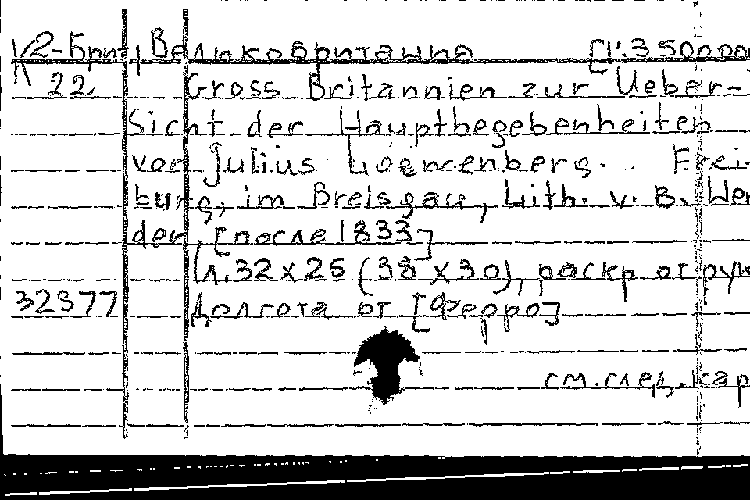 К2-Брит, Великобритания [1:3500000
22 Gross Britannien zur Ueber-
Sicht der Hauptbegebenheiten
von Julius Loewenberg. . Frei-
burg, im Breisgau, Lith. v. B. Her
der, [после 1833]
1л. 32x25 (38x30), раскр от рук
32377 Долгота от [Ферро]
см. след. кар